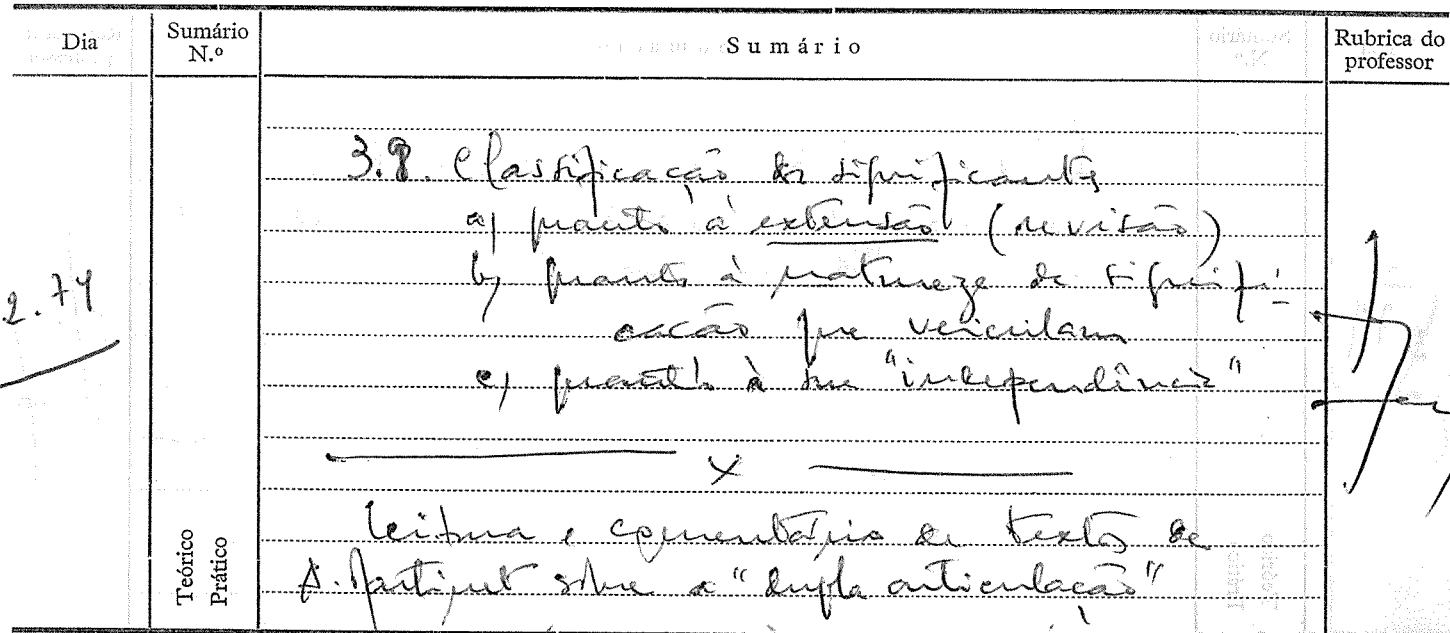 Dia
Sumário N.º
Sumário
Rubrica do professor
3.8. Classificação dos significantes
a) quanto à extensão (revisão)
b) quanto à natureza da signifi-
cação que veiculam
c) quanto à sua "independência"
x
2.74
Teórico
Prático
Leitura e comentário de textos de
A. Martinet sobre a "dupla articulação"